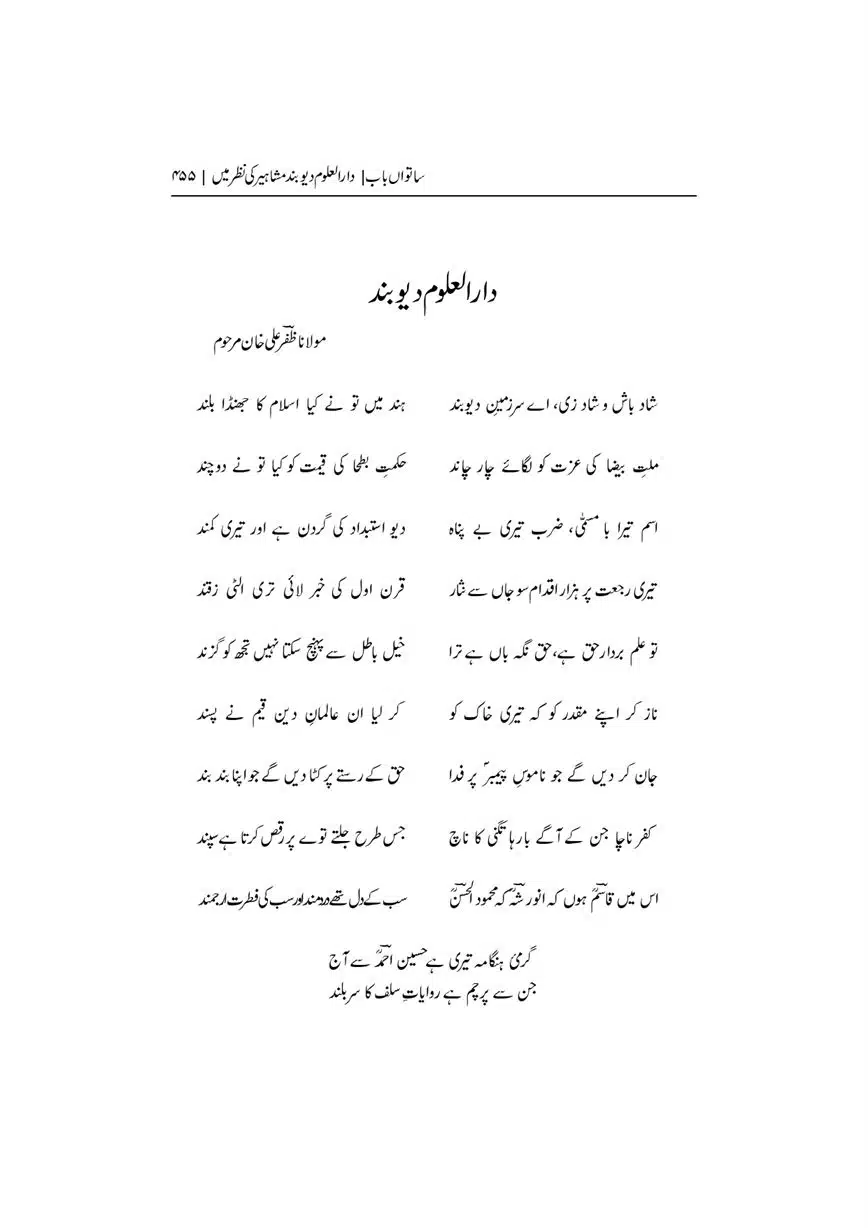 ساتواں باب | دارالعلوم دیوبند مشاہیر کی نظر میں | ۴۵۵
دارالعلوم دیوبند
مولانا ظفرؔ علی خان مرحوم
شاد باش و شاد زی، اے سرزمینِ دیوبند ہند میں تو نے کیا اسلام کا جھنڈا بلند
ملتِ بیضا کی عزت کو لگائے چار چاند حکمتِ بطحا کی قیمت کو کیا تو نے دوچند
اسم تیرا با مسمّٰی، ضرب تیری بے پناہ دیو استبداد کی گردن ہے اور تیری کمند
تیری رجعت پر ہزار اقدام سو جاں سے نثار قرن اول کی خبر لائی تری الٹی زقند
تو علم بردار حق ہے، حق نگہ باں ہے ترا خیل باطل سے پہنچ سکتا نہیں تجھ کو گزند
ناز کر اپنے مقدر کو کہ تیری خاک کو کر لیا ان عالمانِ دین قیم نے پسند
جان کر دیں گے جو ناموسِ پیمبرؐ پر فدا حق کے رستے پر کٹا دیں گے جو اپنا بند بند
کفر ناچا جن کے آگے بارہا تگنی کا ناچ جس طرح جلتے توے پر رقص کرتا ہے سپند
اس میں قاسمؒ ہوں کہ انور شہؒ کہ محمود الحسنؒ سب کے دل تھے دردمند اور سب کی فطرت ارجمند
گرمیٔ ہنگامہ تیری ہے حسین احمدؒ سے آج
جن سے پرچم ہے روایاتِ سلف کا سر بلند